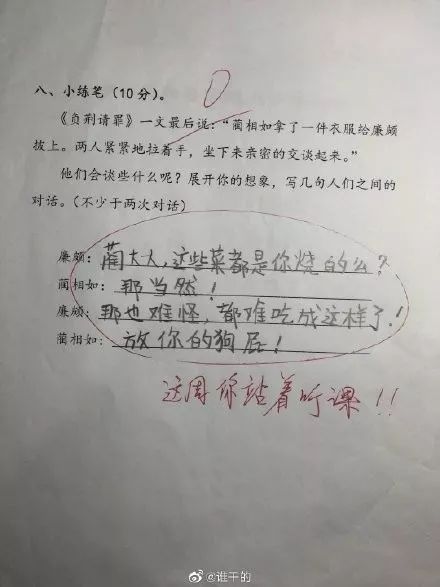 0
八、小练笔(10分)。
《负荆请罪》一文最后说:“蔺相如拿了一件衣服给廉颇
披上。两人紧紧地拉着手,坐下来亲密的交谈起来。”
他们会谈些什么呢?展开你的想象,写几句人们之间的
对话。(不少于两次对话)
廉颇:蔺大人,这些菜都是你烧的么?
蔺相如:那当然!
廉颇:那也难怪,都难吃成这样了!
蔺相如:放你的狗屁!
这周你站着听课!!
@谁干的